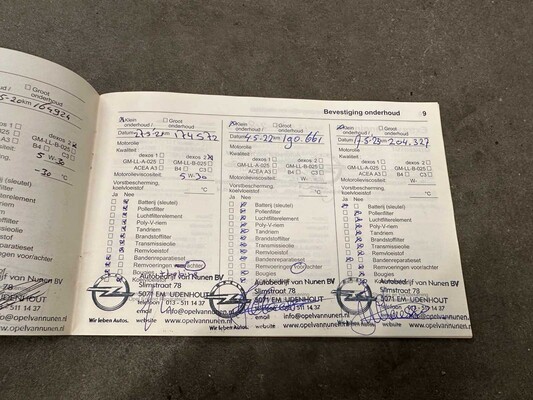 Bevestiging onderhoud 9
Groot
onderhoud
km 164924
dexos 2
GM-LL-B-025
B4 C3
5 W-30
-30 °C
Klein
onderhoud/
Groot
onderhoud
Datum km 174572
Motorolie
Kwaliteit:
dexos 1 dexos 2
GM-LL-A-025 GM-LL-B-025
ACEA A3 B4 C3
Motorolieviscositeit: 5 W-30
Vorstbescherming,
koelvloeistof: °C
Ja Nee
Batterij (sleutel)
Pollenfilter
Luchtfilterelement
Poly-V-riem
Tandriem
Brandstoffilter
Transmissieolie
Remvloeistof
Bandenreparatieset
Remvoeringen voor/achter
Autobedrijf van Nunen BV
Slimstraat 78
5071 EM UDENHOUT
telefoon 013 - 511 14 37
email info@opelvannunen.nl
website www.opelvannunen.nl
Wir leben Autos.
Klein
onderhoud/
Groot
onderhoud
Datum km 190.661
Motorolie
Kwaliteit:
dexos 1 dexos 2
GM-LL-A-025 GM-LL-B-025
ACEA A3 B4 C3
Motorolieviscositeit: W-
Vorstbescherming,
koelvloeistof: °C
Ja Nee
Batterij (sleutel)
Pollenfilter
Luchtfilterelement
Poly-V-riem
Tandriem
Brandstoffilter
Transmissieolie
Remvloeistof
Bandenreparatieset
Remvoeringen voor/achter
Bougies
Autobedrijf van Nunen BV
Slimstraat 78
5071 EM UDENHOUT
013 - 511 14 37
email info@opelvannunen.nl
website www.opelvannunen.nl
Wir leben Autos.
Klein
onderhoud/
Groot
onderhoud
Datum 17-5-23 km 204.327
Motorolie
Kwaliteit:
dexos 1 dexos 2
GM-LL-A-025 GM-LL-B-025
ACEA A3 B4 C3
Motorolieviscositeit: W-
Vorstbescherming,
koelvloeistof: °C
Ja Nee
Batterij (sleutel)
Pollenfilter
Luchtfilterelement
Poly-V-riem
Tandriem
Brandstoffilter
Transmissieolie
Remvloeistof
Bandenreparatieset
Remvoeringen voor/achter
Bougies
Autobedrijf van Nunen BV
Slimstraat 78
5071 EM UDENHOUT
013 - 511 14 37
email info@opelvannunen.nl
website www.opelvannunen.nl
Wir leben Autos.